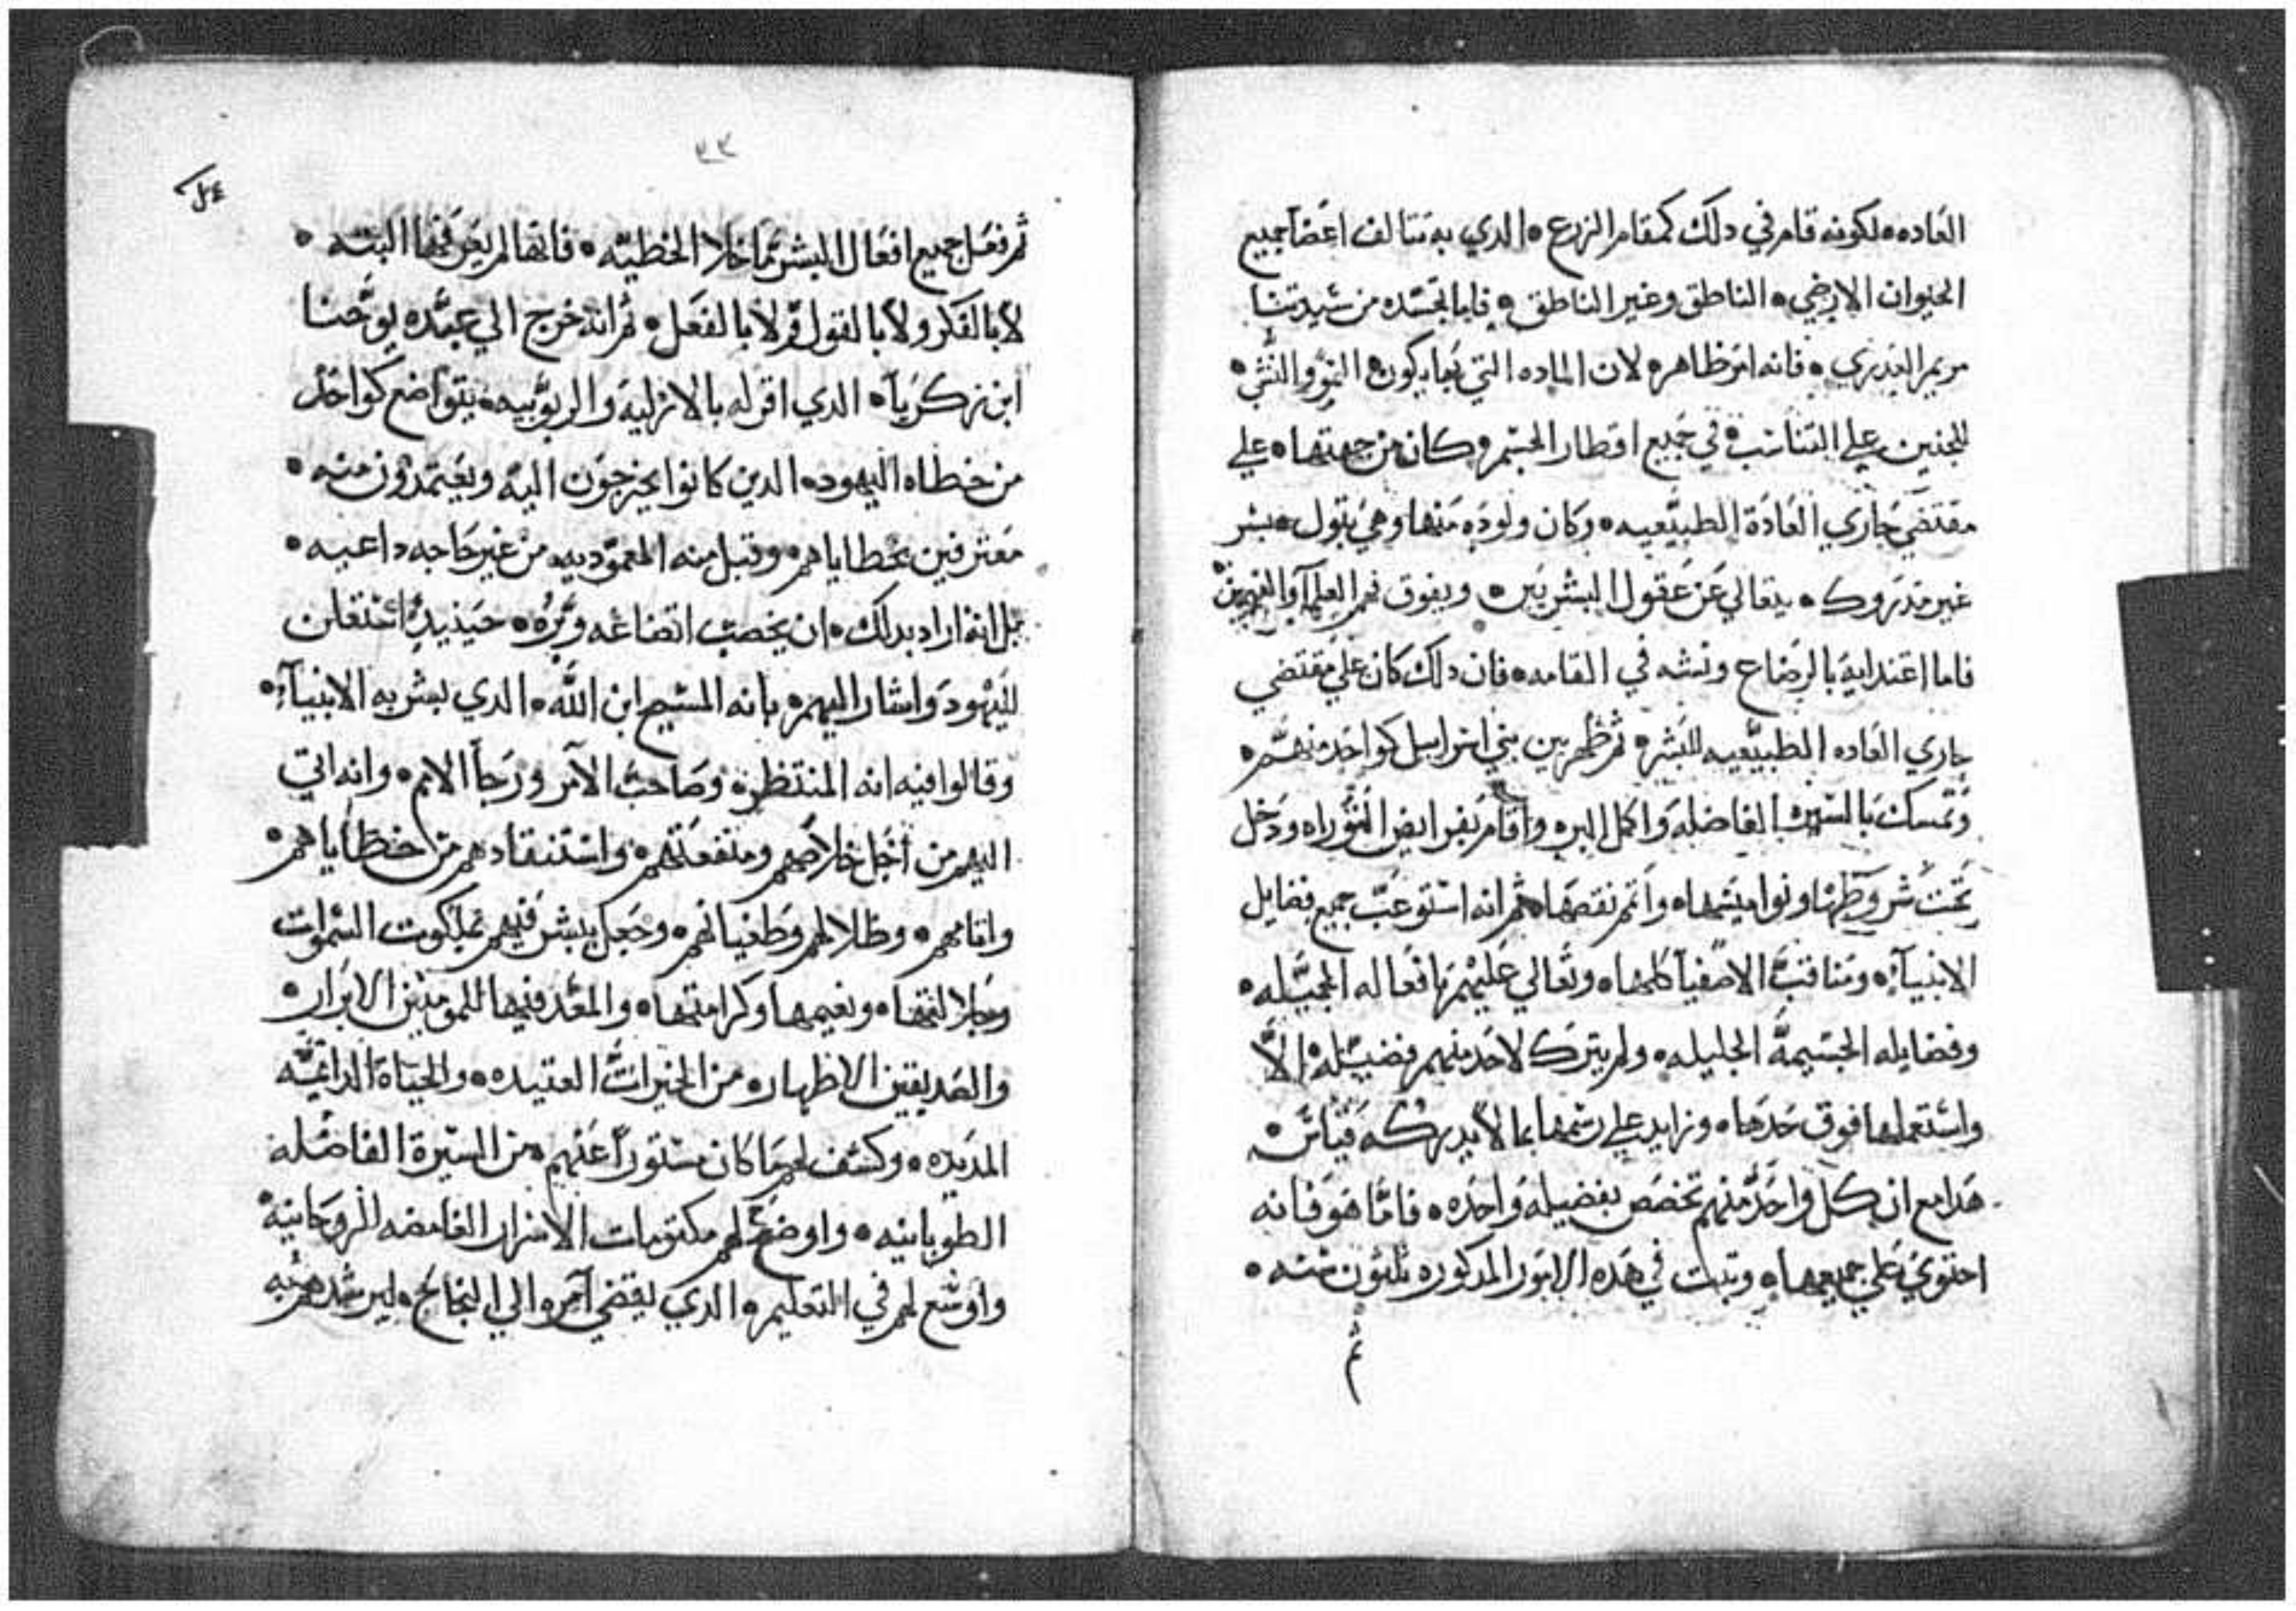 العاده • لكونه قام في دلك كمقام الزرع • الدي به تتالف اعضا جميع
الحيوان الارضي • الناطق وغير الناطق • فاما تجسده من سيدتنا
مريم العدري • فانه امر ظاهر • لان الماده التي بها يكون النمو والنشي •
للجنين علي التناسب • في جميع اقطار الجسم • وكان من جهتها • علي
مقتضي جاري العادة الطبيعيه • وكان ولوده منها وهي بتول • بسر
غير مدروك • يتعالي عن عقول البشريين • ويفوق فهم العلمآ والفهمين
فاما اغتدايه بالرضاع ونشه في القامه • فان دلك كان علي مقتضي
جاري العاده الطبيعيه للبشر • ثم ظهر بين بني اسرايل كواحد منهم •
وتمسك بالسيرة الفاضله واكمل البر • واقام بفرايض التوراه ودخل
تحت شروطها ونواميسها • واتم نقصها • ثم انه استوعب جميع فضايل
الانبيآء • ومناقب الاصفيآ كلها • وتعالي عليهم بافعاله الجميله •
وفضايله الجسيمة الجليله • ولم يترك لاحد منهم فضيله • الا
واستعملها فوق حدها • وزايد علي رسمها بما لا يدركه قياس •
هدا مع ان كل واحد منهم تخصص بفضيله واحده • فاما هو فانه
احتوي علي جميعها • وتبت في هده الامور المدكوره تلتون سنه •
ثم
٣٣
ثم فعل جميع افعال البشر ما خلا الخطيه • فانها لم يعرفها البته •
لا بالفكر ولا بالقول ولا بالفعل • ثم انه خرج الي عند يوحنا
ابن زكريآ • الدي اقر له بالازلية والربوبيه • بتواضع كواحد
من خطاه اليهود • الدين كانوا يخرجون اليه ويعتمدون منه •
معترفين بخطاياهم • وقبل منه المعموديه من غير حاجه داعيه •
بل انه اراد بدلك • ان يخصب اتضاعه وبره • حينيد استعلن
لليهود واشار اليهم • بانه المسيح ابن الله • الدي بشر به الانبيآء •
وقالوا فيه انه المنتظر • وصاحب الامر ورجآ الامم • وانه اتي
اليهم من اجل خلاصهم ومنفعتهم • واستنقادهم من خطاياهم •
واتامهم • وظلالهم وطغيانهم • وجعل يبشر فيهم بملكوت السموات
وجلالتها • ونعيمها وكرامتها • والمعد فيها للمومنين الابرار •
والصديقين الاطهار • من الخيرات العتيده • والحياة الدايمة
المديده • وكشف لهم ما كان مستوراً عنهم • من السيرة الفاضله
الطوبانيه • واوضح لهم مكتومات الاسرار الغامضه الروحانية •
واوسع لهم في التعليم • الدي يقضي امره الي النجاح • ليرشدهم به